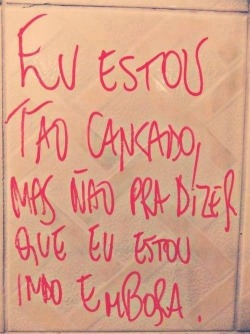 EU ESTOU
TÃO CANÇADO,
MAS NÃO PRA DIZER
QUE EU ESTOU
INDO EMBORA.